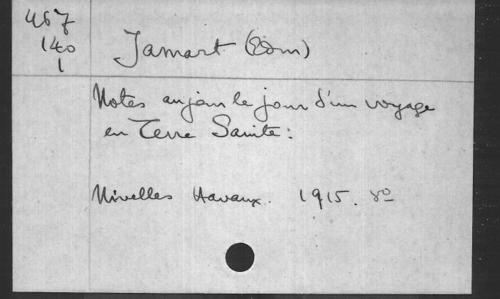 467
140
1
Jamart (Edm)
Notes au jour le jour d'un voyage
en Terre Sainte:
Nivelles Havaux. 1915. 8o